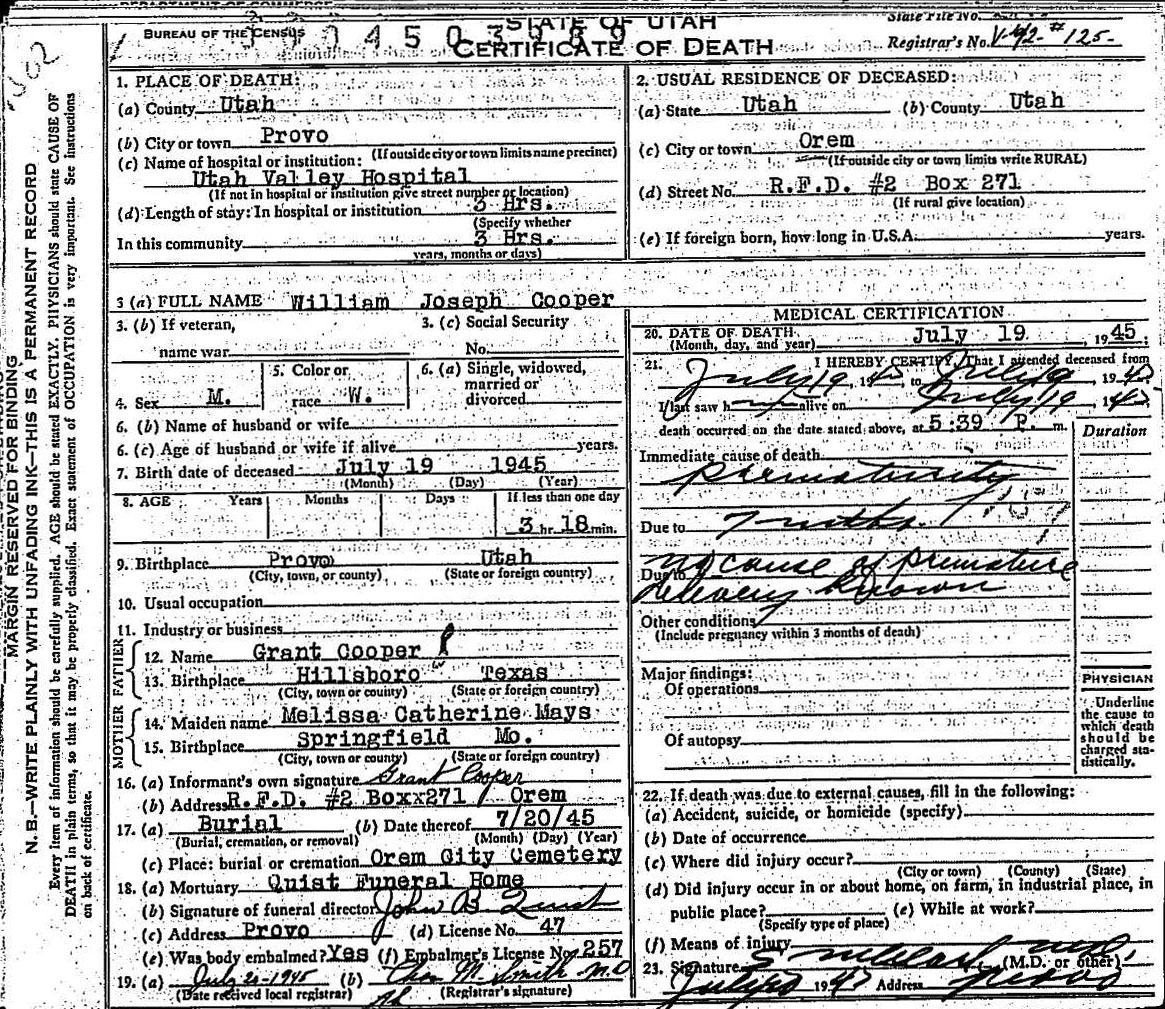 BUREAU OF THE CENSUS
STATE OF UTAH
CERTIFICATE OF DEATH
State File No.
Registrar's No. V-42-#125-
MARGIN RESERVED FOR BINDING
N. B.—WRITE PLAINLY WITH UNFADING INK—THIS IS A PERMANENT RECORD
Every item of information should be carefully supplied. AGE should be stated EXACTLY. PHYSICIANS should state CAUSE OF
DEATH in plain terms, so that it may be properly classified. Exact statement of OCCUPATION is very important. See instructions
on back of certificate.
1. PLACE OF DEATH:
(a) County Utah
(b) City or town Provo
(If outside city or town limits name precinct)
(c) Name of hospital or institution:
Utah Valley Hospital
(If not in hospital or institution give street number or location)
(d) Length of stay: In hospital or institution 3 Hrs.
(Specify whether
In this community 3 Hrs.
years, months or days)
2. USUAL RESIDENCE OF DECEASED:
(a) State Utah (b) County Utah
(c) City or town Orem
(If outside city or town limits write RURAL)
(d) Street No. R.F.D. #2 Box 271
(If rural give location)
(e) If foreign born, how long in U.S.A. years.
3 (a) FULL NAME William Joseph Cooper
3. (b) If veteran,
name war
3. (c) Social Security
No.
4. Sex M.
5. Color or
race W.
6. (a) Single, widowed,
married or
divorced
6. (b) Name of husband or wife
6. (c) Age of husband or wife if alive years.
7. Birth date of deceased July 19 1945
(Month) (Day) (Year)
8. AGE Years Months Days If less than one day
3 hr. 18 min.
9. Birthplace Provo Utah
(City, town, or county) (State or foreign country)
10. Usual occupation
11. Industry or business
FATHER
12. Name Grant Cooper
13. Birthplace Hillsboro Texas
(City, town or county) (State or foreign country)
MOTHER
14. Maiden name Melissa Catherine Mays
15. Birthplace Springfield Mo.
(City, town or county) (State or foreign country)
16. (a) Informant's own signature Grant Cooper
(b) Address R.F.D. #2 Boxx271 Orem
17. (a) Burial (b) Date thereof 7/20/45
(Burial, cremation, or removal) (Month) (Day) (Year)
(c) Place: burial or cremation Orem City Cemetery
18. (a) Mortuary Quist Funeral Home
(b) Signature of funeral director John B. Quist
(c) Address Provo (d) License No. 47
(e) Was body embalmed? Yes (f) Embalmer's License No. 257
19. (a) July 20-1945 (b) Chas M. Smith M.D
(Date received local registrar) (Registrar's signature)
MEDICAL CERTIFICATION
20. DATE OF DEATH July 19, 1945
(Month, day, and year)
21. I HEREBY CERTIFY, That I attended deceased from
July 19 1945, to July 19 1945
I last saw h alive on July 19, 194
death occurred on the date stated above, at 5:39 P. m.
Duration
Immediate cause of death
Prematurity
Due to 7 mths.
Due to No cause of premature
delivery known
Other conditions
(Include pregnancy within 3 months of death)
Major findings:
Of operations
Of autopsy
PHYSICIAN
Underline
the cause to
which death
should be
charged sta-
tistically.
22. If death was due to external causes, fill in the following:
(a) Accident, suicide, or homicide (specify)
(b) Date of occurrence
(c) Where did injury occur?
(City or town) (County) (State)
(d) Did injury occur in or about home, on farm, in industrial place, in
public place? (e) While at work?
(Specify type of place)
(f) Means of injury
23. Signature (M.D. or other)
July 20 194 Address Provo